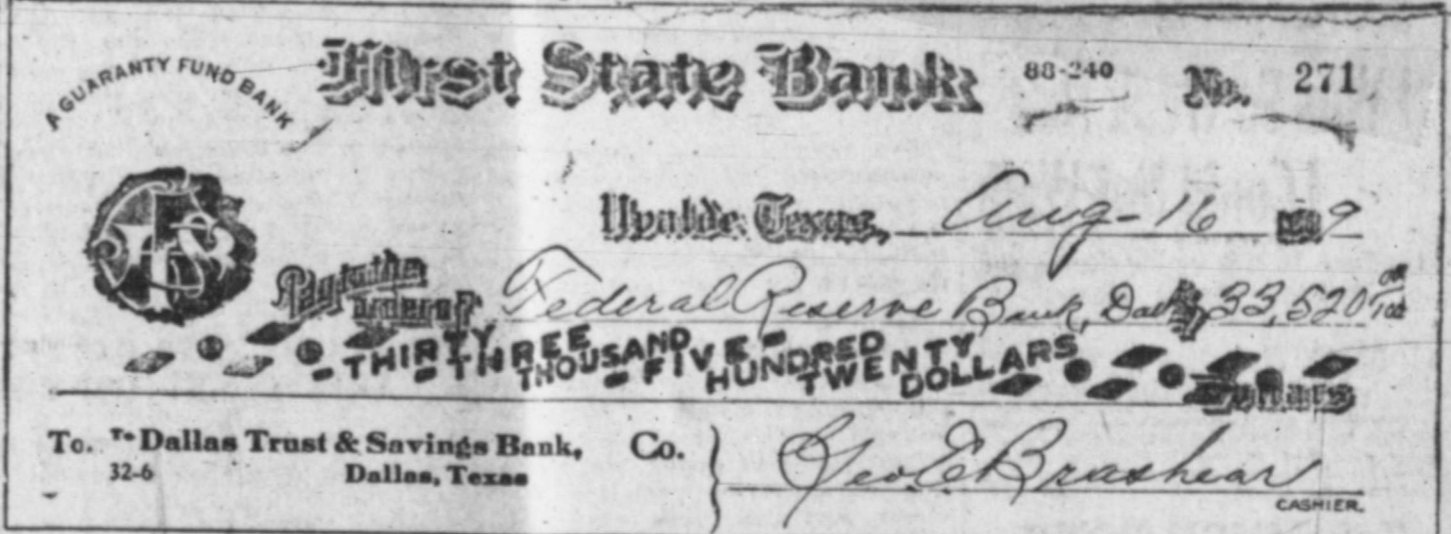 A GUARANTY FUND BANK
First State Bank
88-240
No. 271
Uvalde, Texas, Aug-16 1919
Pay to the order of Federal Reserve Bank, Dal $33,520 00/100
-THIRTY-THREE THOUSAND-FIVE-HUNDRED TWENTY DOLLARS
Dollars
To. The Dallas Trust & Savings Bank, Co.
32-6 Dallas, Texas
Geo E Brashear
CASHIER.